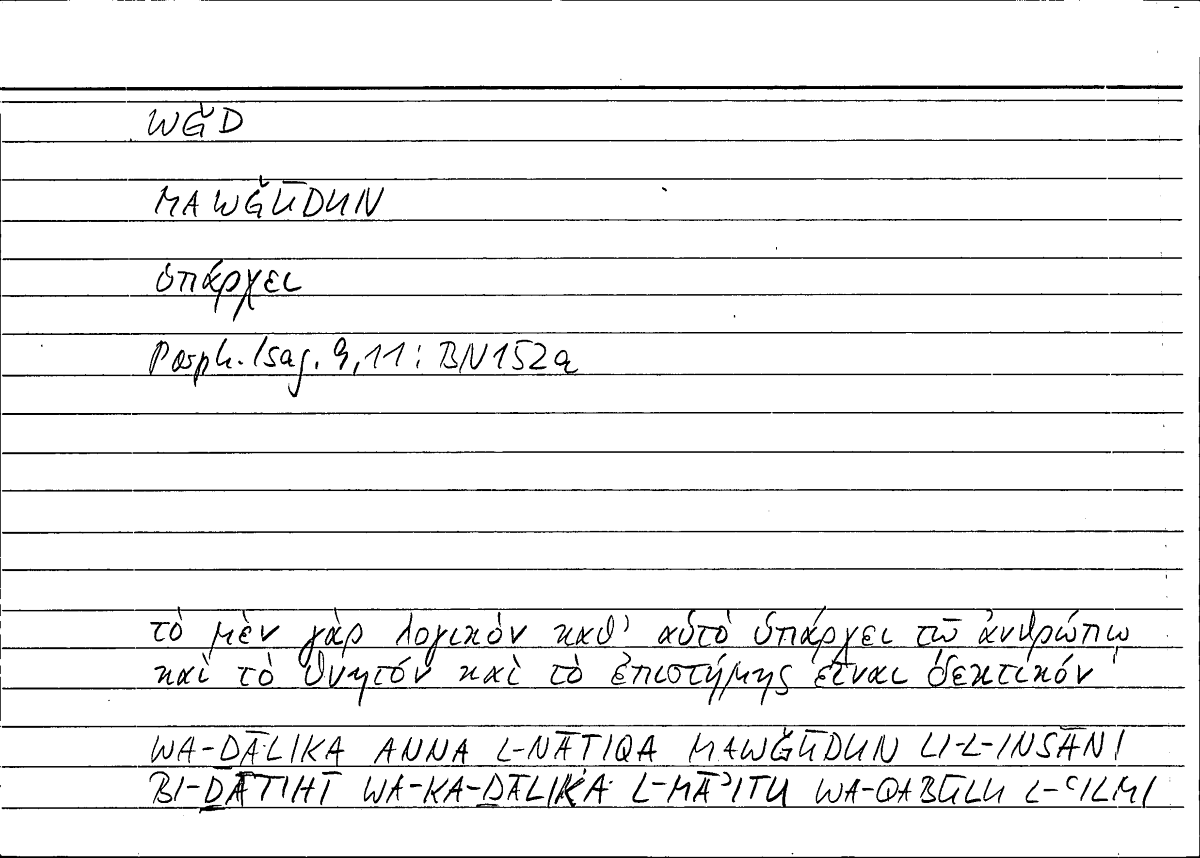 WǦD
MAWǦŪDUN
ὑπάρχει
Porph. Isag. 9,11 : BN152a
τὸ μὲν γὰρ λογικὸν καθ' αὑτὸ ὑπάρχει τῷ ἀνθρώπῳ
καὶ τὸ θνητόν καὶ τὸ ἐπιστήμης εἶναι δεκτικόν
WA-ḎĀLIKA ANNA L-NĀTIQA MAWǦŪDUN LI-L-INSĀNI
BI-ḎĀTIHĪ WA-KA-ḎĀLIKA L-MĀʾITU WA-QABŪLU L-ʿILMI